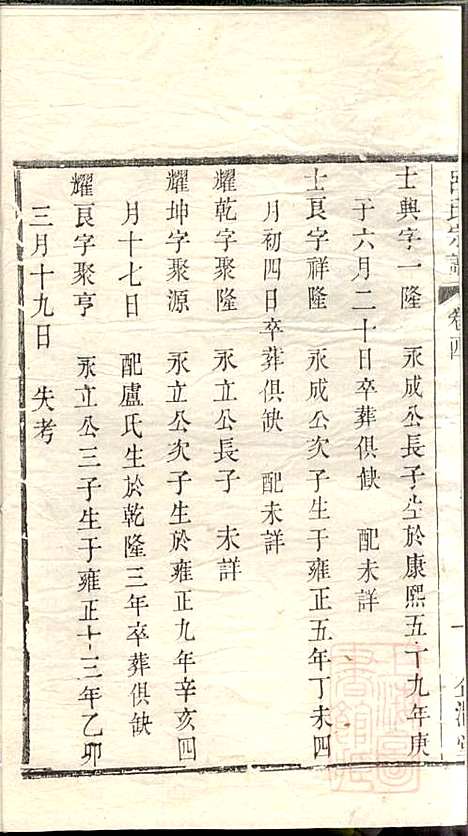 呂氏宗譜 卷四 一
士興字一隆 永成公長子生於康熙五十九年庚
子六月二十日卒葬俱缺 配未詳
士良字祥隆 永成公次子生于雍正五年丁未四
月初四日卒葬俱缺 配未詳
耀乾字聚隆 永立公長子 未詳
耀坤字聚源 永立公次子生於雍正九年辛亥四
月十七日 配盧氏生於乾隆三年卒葬俱缺
耀良字聚亨 永立公三子生于雍正十三年乙卯
三月十九日 失考